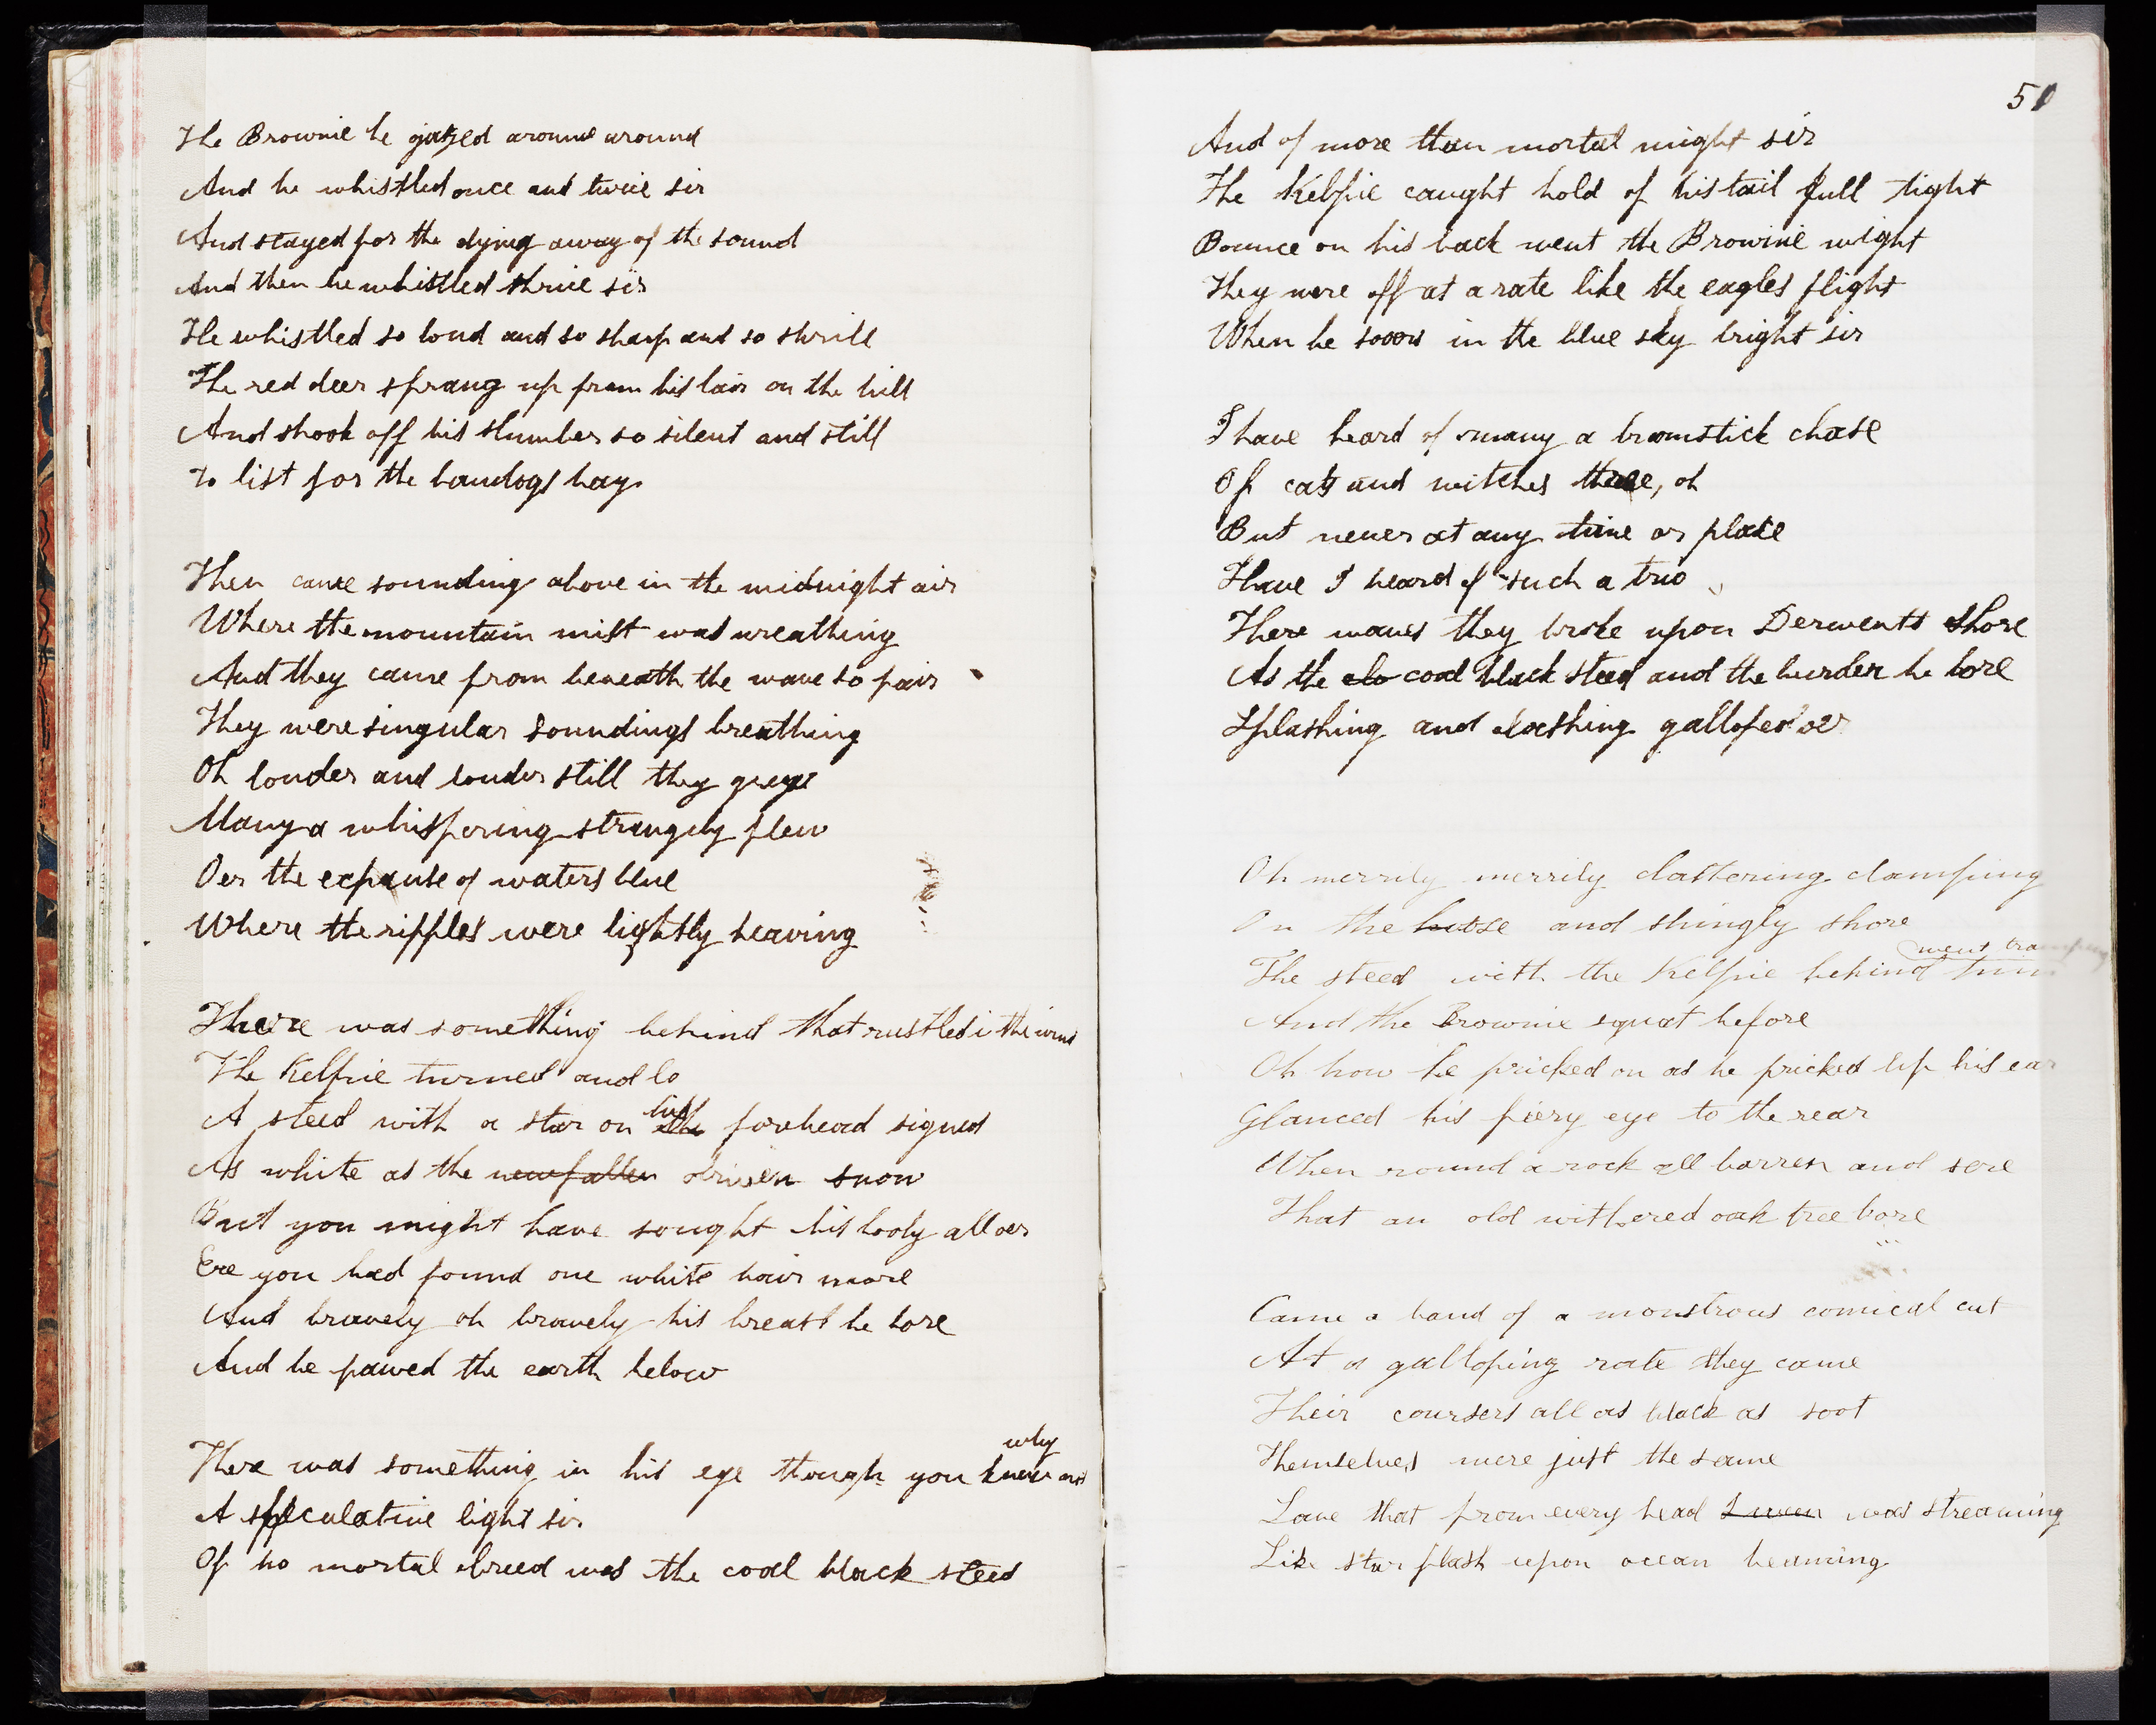 The Brownie he gazed around around
And he whistled once and twice sir
And stayed for the dying away of the sound
And then he whistled thrice sir
He whistled so loud and so sharp and so shrill
The red deer sprang up from his lair on the hill
And shook off his slumber so silent and still
To list for the bandogs bay

Then came sounding above in the midnight air
Where the mountain mist was wreathing
And they came from beneath the wave so fair
They were singular soundings breathing
Oh louder and louder still they grew
Many a whispering strangely flew
Oer the expanse of waters blue
Where the ripples were lightly heaving

There was something behind that rustled i the wind
The Kelpie turned and lo
A steed with a star on his the forehead signed
As white as the newfallen driven snow
But you might have sought his body all oer
Ere you had found one white hair more
And bravely oh bravely his breast he bore
And he pawed the earth below

why
There was something in his eye though you knew not
A speculative light sir
Of no mortal breed was the coal black steed
51
And of more than mortal might sir
The Kelpie caught hold of his tail full tight
Bounce on his back went the Brownie wight
They were off at a rate like the eagles flight
When he soars in the blue sky bright sir

I have heard of many a broomstick chase
Of cats and witches three, oh
But never at any time or place
Have I heard of such a trio
There waves they broke upon Derwents shore
As the clo coal black steed and the burden he bore
Splashing and dashing galloped oer

Oh merrily merrily clattering clamping
On the loose and shingly shore
went tramping
The steed with the Kelpie behind him
And the Brownie squat before
Oh how he pricked on as he pricked up his ear
Glanced his fiery eye to the rear
When round a rock all barren and sere
That an old withered oak tree bore

Came a band of a monstrous comical cut
At a galloping rate they came
Their coursers all as black as soot
Themselves were just the same
Save that from every head I ween was streaming
Like star flash upon ocean beaming